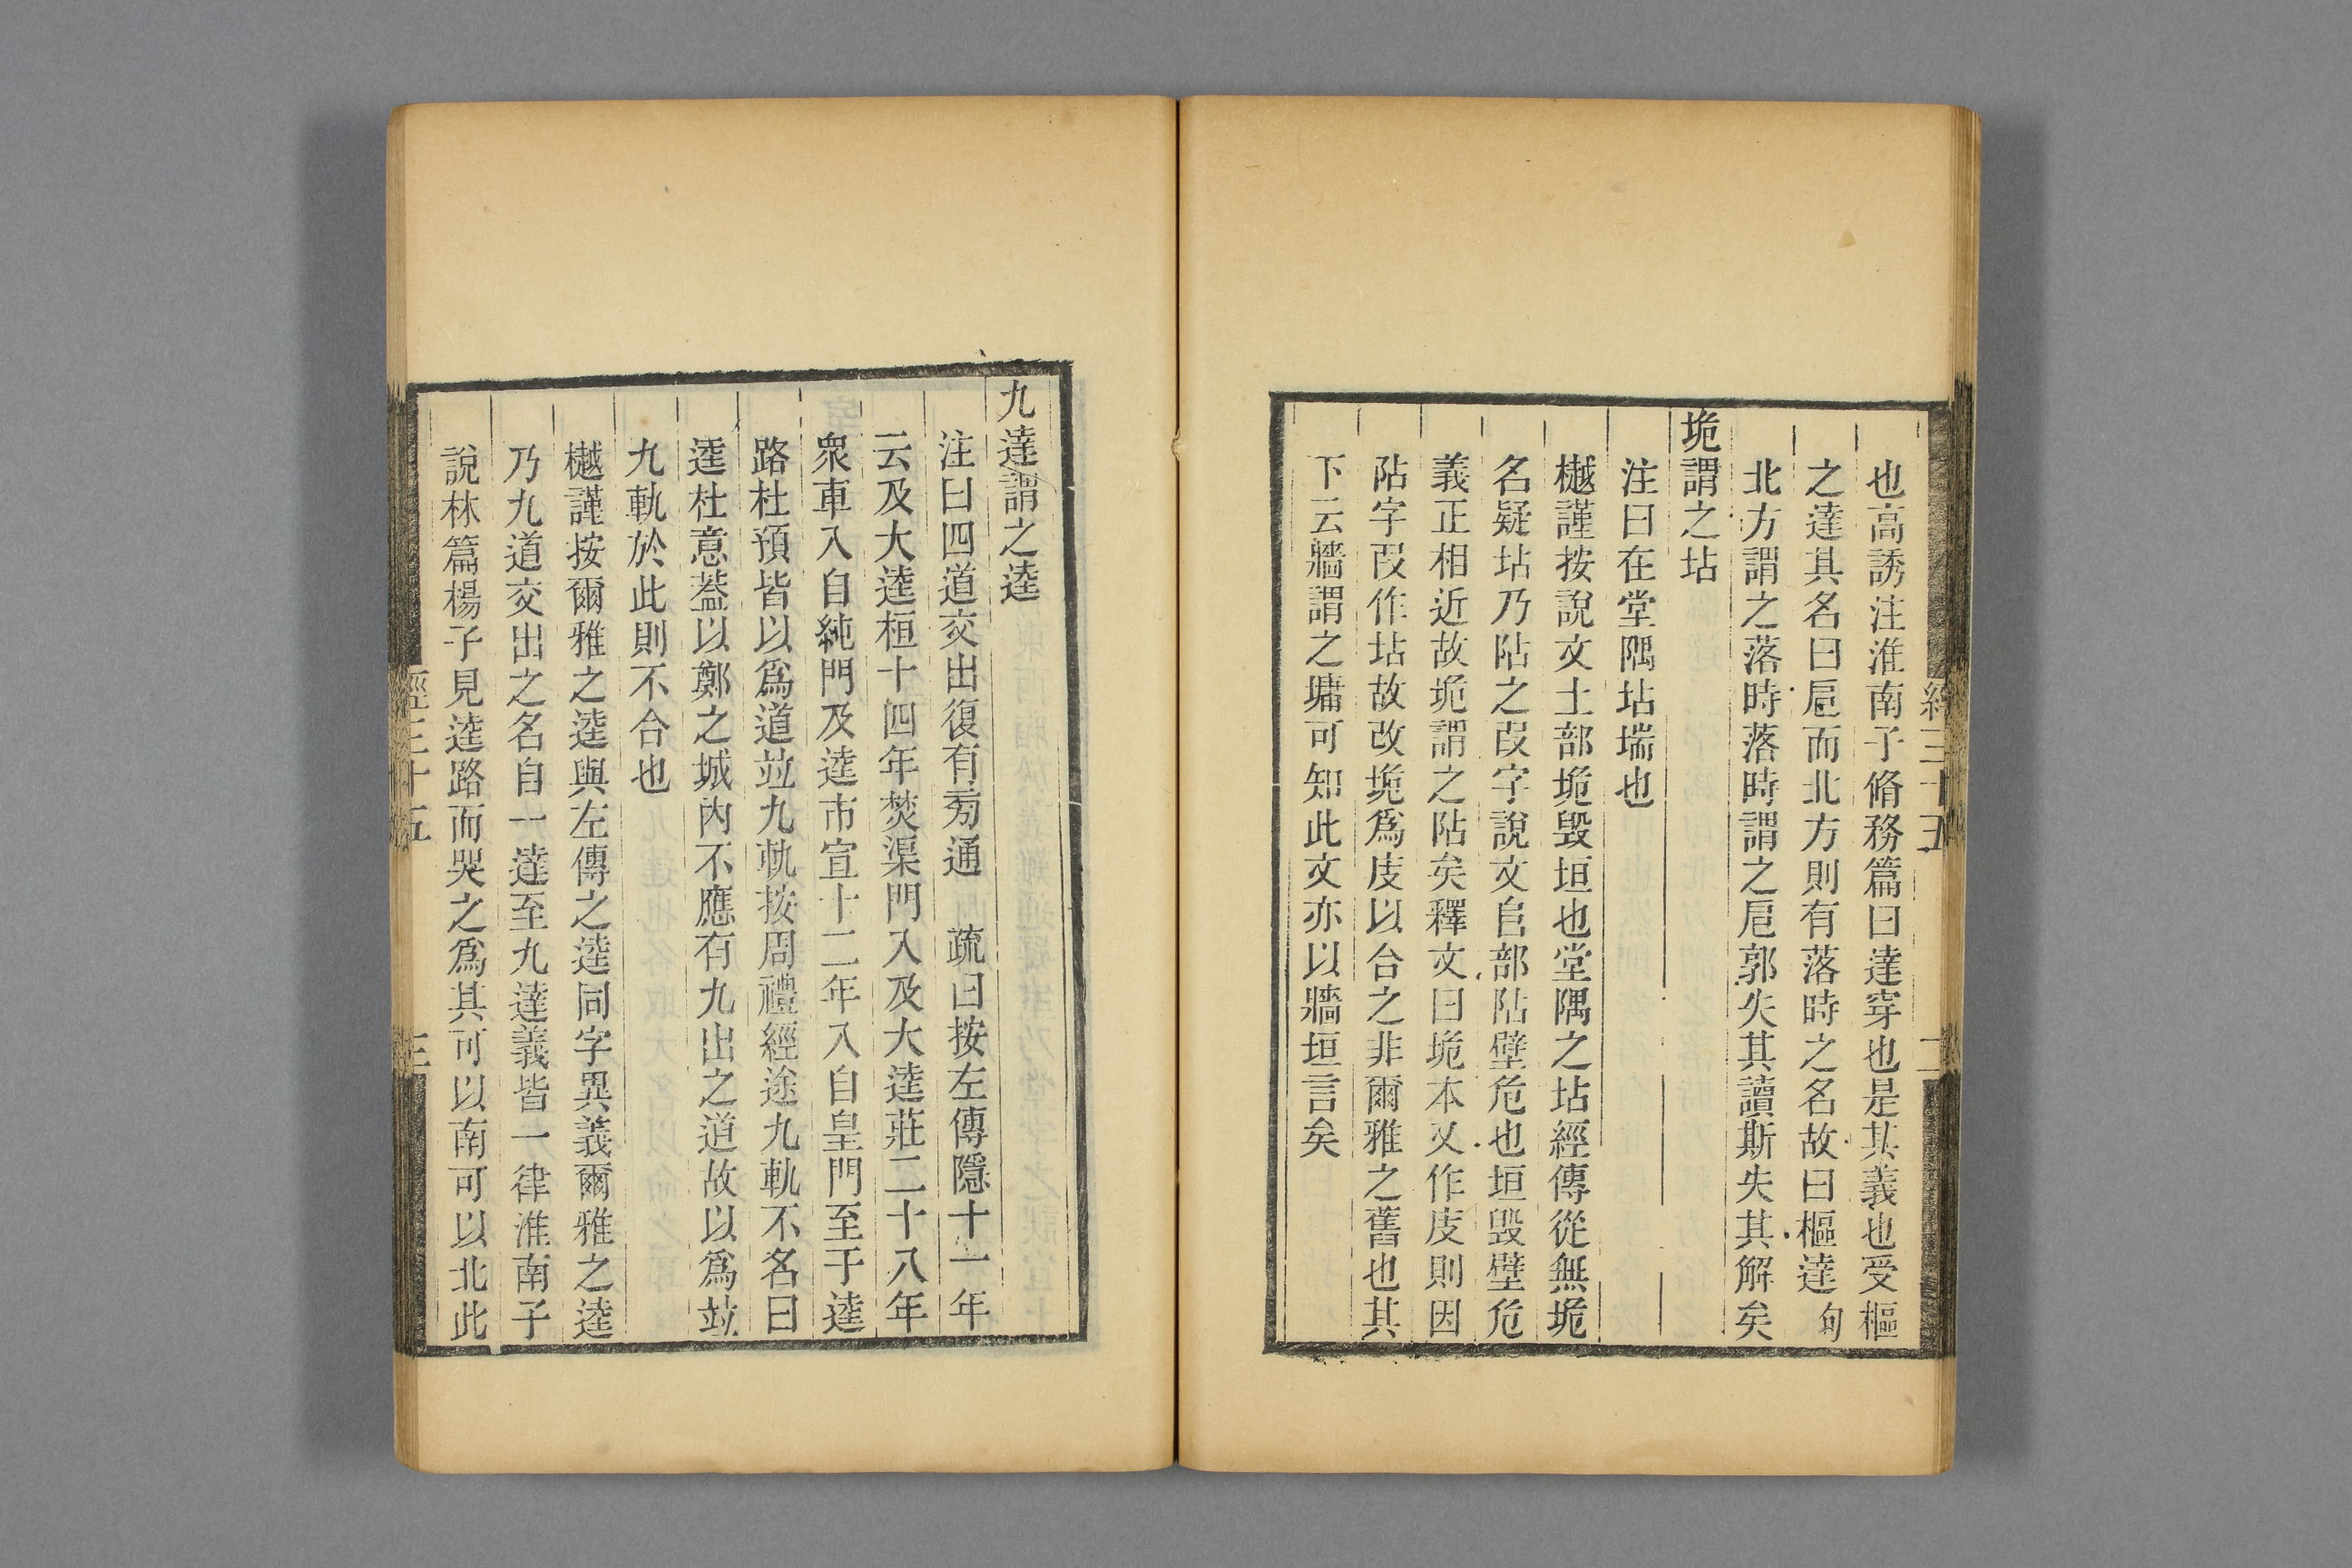 經三十五
二
也高誘注淮南子脩務篇曰達穿也是其義也受樞
之達其名曰戹而北方則有落時之名故曰樞達句
北方謂之落時落時謂之戹郭失其讀斯失其解矣
垝謂之坫
注曰在堂隅坫㙐也
樾謹按說文土部垝毀垣也堂隅之坫經傳從無垝
名疑坫乃阽之叚字說文𨸏部阽壁危也垣毀壁危
義正相近故垝謂之阽矣釋文曰垝本又作庋則因
阽字叚作坫故改垝爲庋以合之非爾雅之舊也其
下云牆謂之墉可知此文亦以牆垣言矣
九達謂之逵
注曰四道交出復有㫄通　疏曰按左傳隱十一年
云及大逵桓十四年焚渠門入及大逵莊二十八年
衆車入自純門及逵市宣十二年入自皇門至于逵
路杜預皆以爲道並九軌按周禮經途九軌不名曰
逵杜意葢以鄭之城內不應有九出之道故以爲並
九軌於此則不合也
樾謹按爾雅之逵與左傳之逵同字異義爾雅之逵
乃九道交出之名自一達至九達義皆一律淮南子
說林篇楊子見逵路而哭之爲其可以南可以北此
經三十五
三